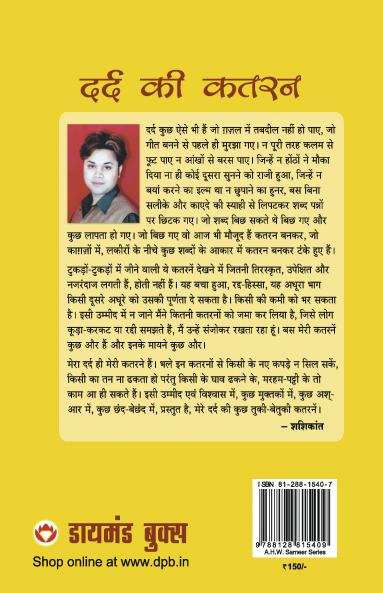 दर्द की कतरन
दर्द कुछ ऐसे भी हैं जो ग़ज़ल में तबदील नहीं हो पाए, जो
गीत बनने से पहले ही मुरझा गए। न पूरी तरह कलम से
फूट पाए न आंखों से बरस पाए। जिन्हें न होंठों ने मौका
दिया ना ही कोई दूसरा सुनने को राजी हुआ, जिन्हें न
बयां करने का इल्म था न छुपाने का हुनर, बस बिना
सलीके और काएदे की स्याही से लिपटकर शब्द पन्नों
पर छिटक गए। जो शब्द बिछ सकते थे बिछ गए और
कुछ लापता हो गए। जो बिछ गए वो आज भी मौजूद हैं कतरन बनकर, जो
काग़ज़ों में, लकीरों के नीचे कुछ शब्दों के आकार में कतरन बनकर टंके हुए हैं।
टुकड़ों-टुकड़ों में जीने वाली ये कतरनें देखने में जितनी तिरस्कृत, उपेक्षित और
नजरंदाज लगती हैं, होती नहीं हैं। यह बचा हुआ, रद्द-हिस्सा, यह अधूरा भाग
किसी दूसरे अधूरे को उसकी पूर्णता दे सकता है। किसी की कमी को भर सकता
है। इसी उम्मीद में न जाने मैंने कितनी कतरनों को जमा कर लिया है, जिसे लोग
कूड़ा-करकट या रद्दी समझते हैं, मैं उन्हें संजोकर रखता रहा हूं। बस मेरी कतरनें
कुछ और हैं और इनके मायने कुछ और।
मेरा दर्द ही मेरी कतरने हैं। भले इन कतरनों से किसी के नए कपड़े न सिल सकें,
किसी का तन ना ढकता हो परंतु किसी के घाव ढकने के, मरहम-पट्टी के तो
काम आ ही सकते हैं। इसी उम्मीद एवं विश्वास में, कुछ मुक्तकों में, कुछ अश्-
आर में, कुछ छंद-बेछंद में, प्रस्तुत है, मेरे दर्द की कुछ तुकी-बेतुकी कतरनें।
– शशिकांत
ISBN 81-288-1540-7
9788128815409
A.H.W. Sameer Series
₹ 150/-
डायमंड बुक्स
Shop online at www.dpb.in